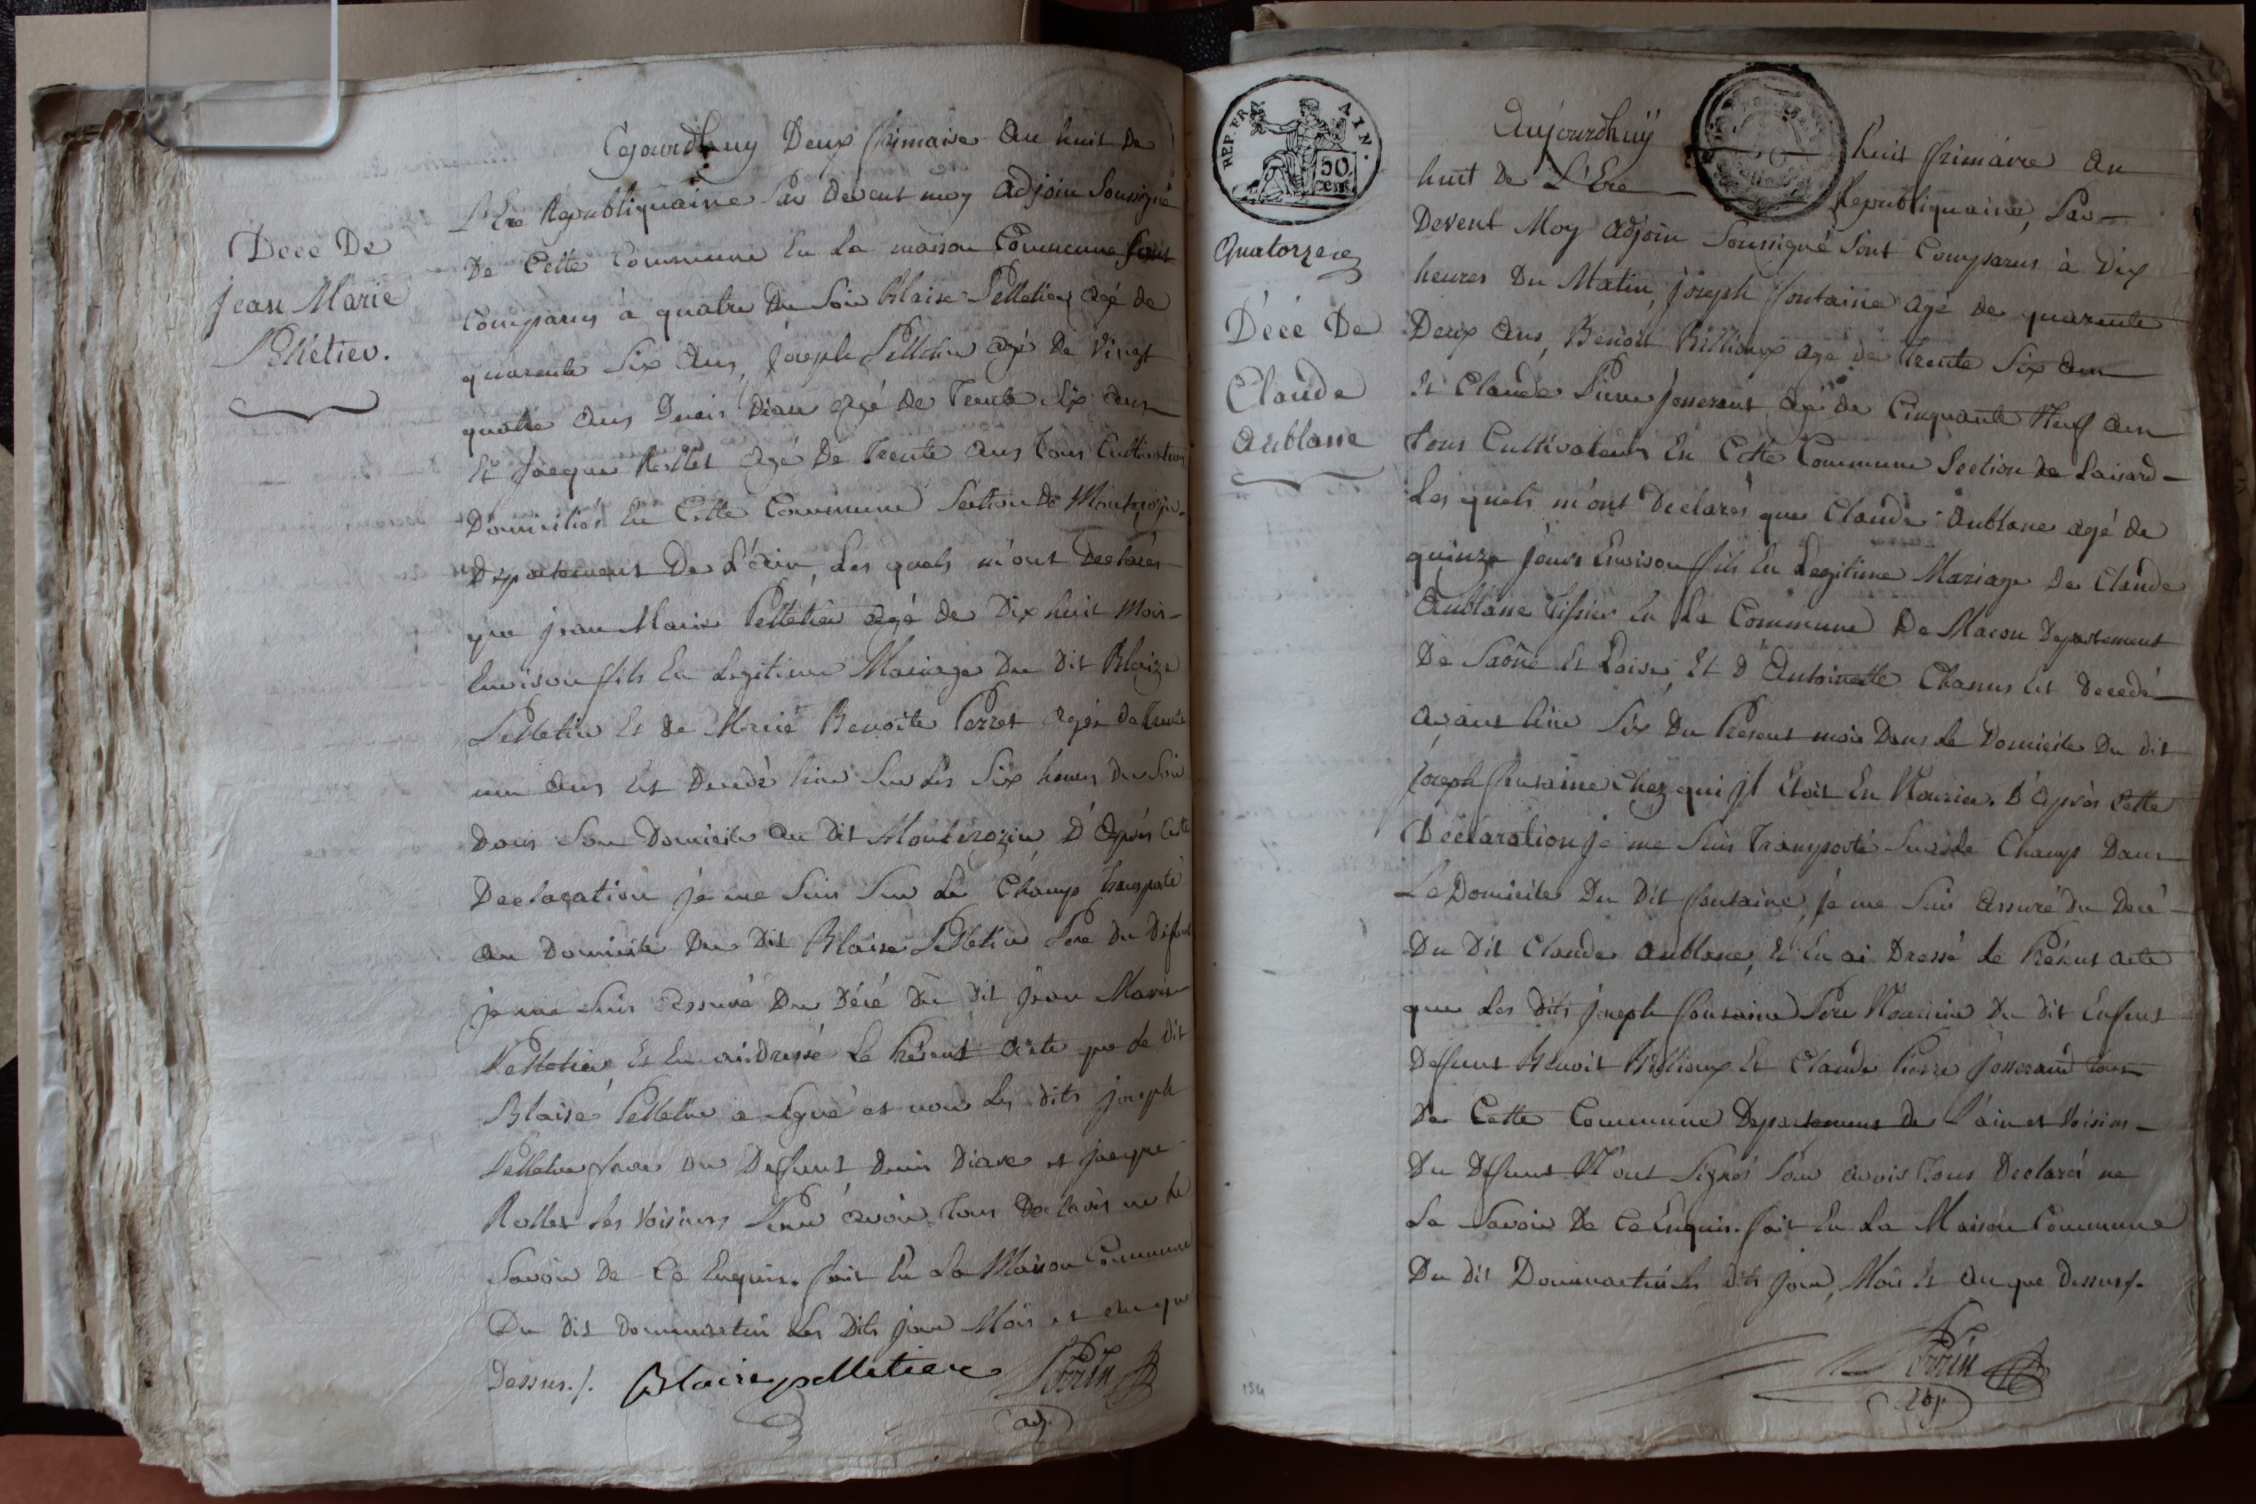 Cejourdhuy Deux frimaire an huit de
L'Ere Republiquaine Par devent moy adjoin Soussigné
De Cette Commune En La maison Commune sont
Comparus à quatre du Soir Blaise Pelletier agé de
quarente Six ans, Joseph Pelletier agé De vingt
quatre ans Denis Diau agé De Trente Six ans
Et Jacque Rollet agé De Trente ans Tous Cultivateurs
Domiciliés En Cette Commune Section de
Departement De L'ain, Les quels m'ont Declarés
que jean Marie Pelletier agé de Dix huit Mois
Environ fils En Legitime Mariage Du Dit Blaize
Pelletier Et de Marie Benoite Perret agée de Trente
un ans Est Decedé hier Sur Les Six heures Du Soir
Dans Son Domicile au Dit Monterozin D'Après Cette
Declaration je me Suis Sur Le Champ transporté
au Domicile Du Dit Blaise Pelletier Pere Du Defunt
je me Suis assuré Du Décé Du Dit jean Marie
Pelletier Et En ai Dressé Le Présent acte que Le Dit
Blaise Pelletier a Signé et non Les Dits joseph
Pelletier frere Du Defunt Denis Diau et jacque
Rollet Ses Voisins Pour avoir Tous Declarés ne Le
Savoir De Ce Enquis. fait En La Maison Commune
Du Dit Dommartin Les Dits jour Mois et an que
Dessus./. Blaise pelletier Perrin
adj
Décé De
jean Marie
Pelletier.
REP. FRA. AIN.
50
CEN.
Quatorze
Décé De
Claude
Aublane
Aujourdhuÿ huit frimaire an
huit De L'Ere Republiquaine, Par
Devent Moy adjoin Soussigné Sont Comparus à Dix
heures Du Matin, joseph fontaine agé de quarente
Deux ans, Benoit Billioux agé de Trente Six ans
Et Claude Pierre josserand agé de Cinquante Neuf ans
Tous Cultivateurs En Cette Commune Section de Loisard
Les quels m'ont Declarés que Claude Aublane agé de
quinze jours Environ fils En Legitime Mariage De Claude
Aublane Tissier En La Commune De Macon Departement
De Saône Et Loire, Et D'Antoinette Chanus Est Decedé
avant hier Six Du Present mois Dans Le Domicile Du Dit
joseph fontaine Chez qui jl Etoit En Nourice. D'Après Cette
Déclaration je me Suis Transporté Sur Le Champ Dans
Le Domicile Du Dit fontaine, je me Suis assuré du Decé
Du Dit Claude Aublane, Et En ai Dressé Le Présent acte
que Les Dits joseph fontaine Pere Nouricier Du Dit Enfent
Defunt Benoit Billioux Et Claude Pierre josserand Tous
De Cette Commune Departement de L'ain et Voisins
Du Defunt N'ont Signés Pour avoir Tous Declarés ne
Le Savoir De Ce Enquis. fait En La Maison Commune
Du Dit Dommartin Les Dits jour, Mois Et an que Dessus./.
Perrin
adj
154